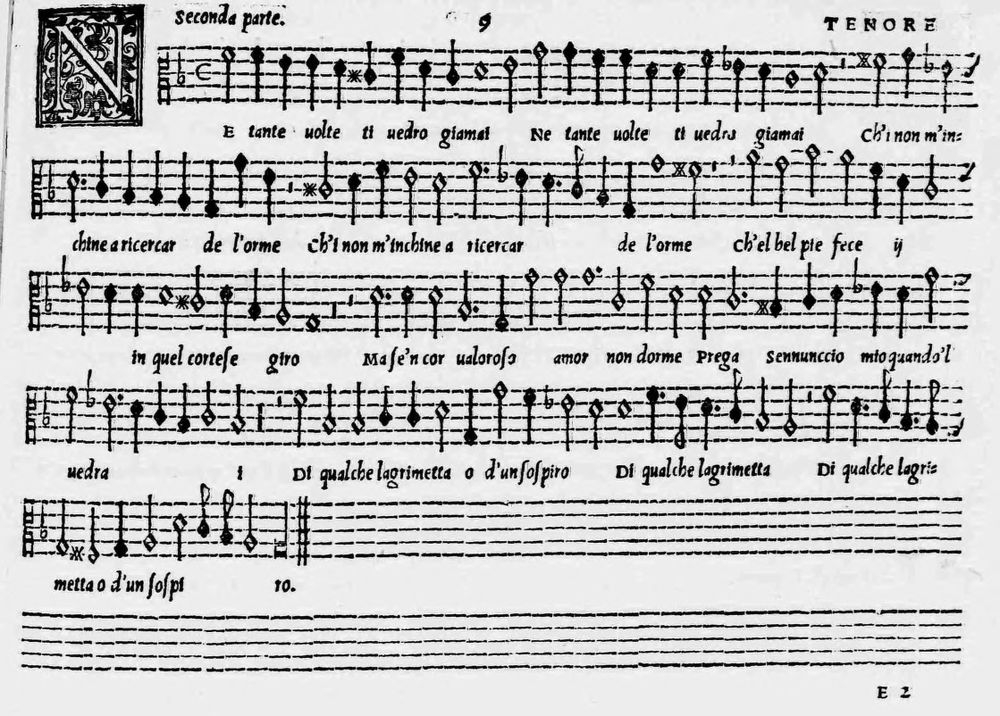 Seconda parte. 9 TENORE
NE tante uolte ti uedro giamai Ne tante uolte ti uedro giamai Ch'i non m'in=
chine a ricercar de l'orme Ch'i non m'inchine a ricercar de l'orme Ch'el bel pie fece ij
in quel cortese giro Ma se'n cor ualoroso amor non dorme Prega Sennunccio mio quando'l
uedra i Di qualche lagrimetta o d'un sospiro Di qualche lagrimetta Di qualche lagri=
metta o d'un sospi ro.
E 2